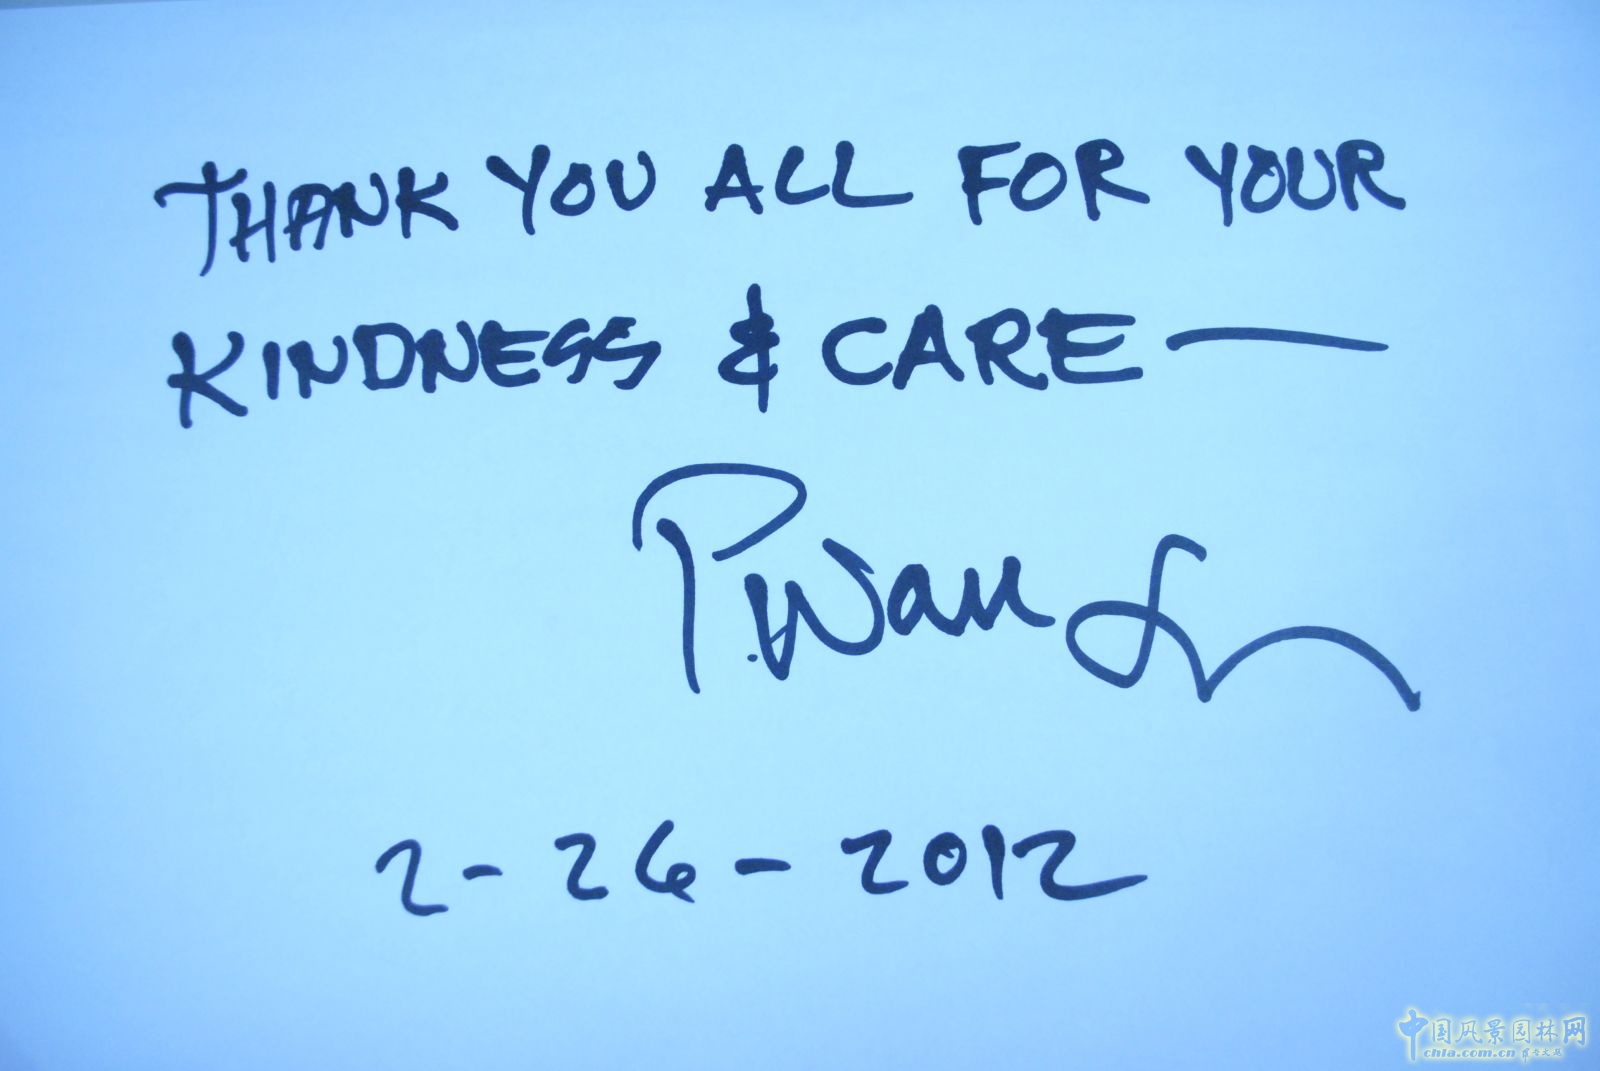 THANK YOU ALL FOR YOUR
KINDNESS & CARE —
2-26-2012
中国风景园林网
chla.com.cn